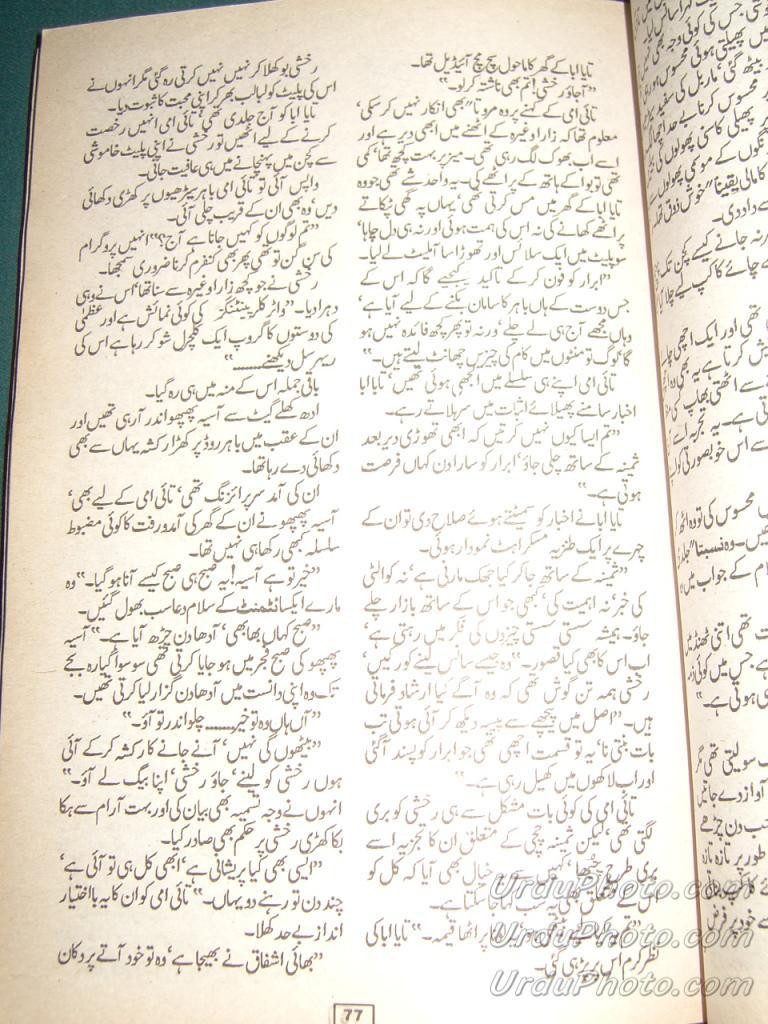 تایا ابا کے گھر کا ماحول سچ مچ آئیڈیل تھا۔
”آجاؤ رخشی! تم بھی ناشتہ کرلو۔“
تائی امی کے کہنے پر وہ مروتا“ بھی انکار نہیں کر سکی‘
معلوم تھا کہ زارا وغیرہ کے اٹھنے میں ابھی دیر ہے اور
اسے اب بھوک لگ رہی تھی۔ میز پر بہت کچھ تھا‘ کمی
تھی تو بوا کے ہاتھ کے پراٹھے کی۔ یہ واحد شے تھی جو وہ
تایا ابا کے گھر میں مس کرتی تھی‘ یہاں پہ گھی ٹپکاتے
پراٹھے کھانے کی نہ اس کی ہمت ہوئی اور نہ ہی دل چاہا‘
سو پلیٹ میں ایک سلائس اور تھوڑا سا آملیٹ لے لیا۔
”ابرار کو فون کر کے تاکید کیجیے گا کہ اس کے
جس دوست کے ہاں باہر کا سامان بکنے کے لیے آیا ہے‘
وہاں مجھے آج ہی لے چلے‘ ورنہ تو پھر کچھ فائدہ نہیں ہو
گا‘ لوگ تو منٹوں میں کام کی چیزیں چھانٹ لیتے ہیں۔“
تائی امی اپنے ہی سلسلے میں الجھی ہوئی تھیں‘ تایا ابا
اخبار سامنے پھیلائے اثبات میں سر ہلاتے رہے۔
”تم ایسا کیوں نہیں کرتیں کہ ابھی تھوڑی دیر بعد
ثمینہ کے ساتھ چلی جاؤ‘ ابرار کو سارا دن کہاں فرصت
ہوتی ہے۔“
تایا ابا نے اخبار کو سمیٹتے ہوئے صلاح دی تو ان کے
چہرے پر ایک طنزیہ مسکراہٹ نمودار ہوئی۔
”ثمینہ کے ساتھ جا کر کیا جھک مارنی ہے‘ نہ کوالٹی
کی خبر‘ نہ اہمیت کی‘ کبھی جو اس کے ساتھ بازار چلے
جاؤ۔ ہمیشہ سستی سستی چیزوں کی فکر میں رہتی ہے‘
اب اس کا بھی کیا قصور۔“ وہ جیسے سانس لینے کو رکیں‘
رخشی ہمہ تن گوش تھی کہ وہ آگے کیا ارشاد فرماتی
ہیں۔ ”اصل میں پیچھے سے پیسہ دیکھ کر آئی ہوتی تب
بات بنتی نا‘ یہ تو قسمت اچھی تھی جو ابرار کو پسند آگئی
اور اب لاکھوں میں کھیل رہی ہے۔“
تائی امی کی کوئی بات مشکل سے ہی رخشی کو بری
لگتی تھی‘ لیکن ثمینہ چچی کے متعلق ان کا تجزیہ اسے
بری طرح خیال بھی آیا کہ کل کو
اس کے متعلق بھی یہ سب کہا جا سکتا ہے۔
پراٹھا قیمہ۔“ تایا ابا کی
نظر کرم اس پر پڑ ہی گئی۔
رخشی بوکھلا کر نہیں نہیں کرتی رہ گئی مگر انہوں نے
اس کی پلیٹ کو لبالب بھر کر اپنی محبت کا ثبوت دیا۔
تایا ابا کو آج جلدی تھی‘ تائی امی انہیں رخصت
کرنے کے لیے اٹھیں تو رخشی نے اپنی پلیٹ خاموشی
سے کچن میں پہنچانے میں ہی عافیت جانی۔
واپس آئی تو تائی امی باہر سیڑھیوں پر کھڑی دکھائی
دیں‘ وہ بھی ان کے قریب چلی آئی۔
”تم لوگوں کو کہیں جانا ہے آج؟“ انہیں پروگرام
کی سن گن تو تھی پھر بھی کنفرم کرنا ضروری سمجھا۔
رخشی نے جو کچھ زارا وغیرہ سے سنا تھا‘ اس نے وہی
دہرا دیا۔ ”واٹر کلر پینٹنگز کی کوئی نمائش ہے اور عظمیٰ
کی دوستوں کا گروپ ایک کلچرل شو کر رہا ہے اس کی
ریہرسل دیکھنے.........“
باقی جملہ اس کے منہ میں ہی رہ گیا۔
ادھ کھلے گیٹ سے آسیہ پھپھو اندر آ رہی تھیں اور
ان کے عقب میں باہر روڈ پر کھڑا رکشہ یہاں سے بھی
دکھائی دے رہا تھا۔
ان کی آمد سرپرائزنگ تھی‘ تائی امی کے لیے بھی‘
آسیہ پھپھو نے ان کے گھر کی آمدورفت کا کوئی مضبوط
سلسلہ کبھی رکھا ہی نہیں تھا۔
”خیر تو ہے آسیہ! یہ صبح ہی صبح کیسے آنا ہو گیا۔“ وہ
مارے ایکسائٹمنٹ کے سلام دعا سب بھول گئیں۔
”صبح کہاں بھابھی‘ آدھا دن چڑھ آیا ہے۔“ آسیہ
پھپھو کی صبح فجر میں ہو جایا کرتی تھی سو سوا گیارہ بجے
تک وہ اپنی دانست میں آدھا دن گزار لیا کرتی تھیں۔
”آں ہاں وہ تو خیر......... چلو اندر تو آؤ۔“
”بیٹھوں گی نہیں‘ آنے جانے کا رکشہ کر کے آئی
ہوں رخشی کو لینے‘ جاؤ رخشی‘ اپنا بیگ لے آؤ۔“
انہوں نے وجہ تسمیہ بھی بیان کی اور بہت آرام سے ہکا
بکا کھڑی رخشی پر حکم بھی صادر کیا۔
”ایسی بھی کیا پریشانی ہے‘ ابھی کل ہی تو آئی ہے‘
چند دن تو رہنے دو یہاں۔“ تائی امی کو ان کا یہ با اختیار
انداز بے حد کھلا۔
”بھائی اشفاق نے بھیجا ہے‘ وہ تو خود آتے پر دکان
77
UrduPhoto.com
UrduPhoto.com
UrduPhoto.com